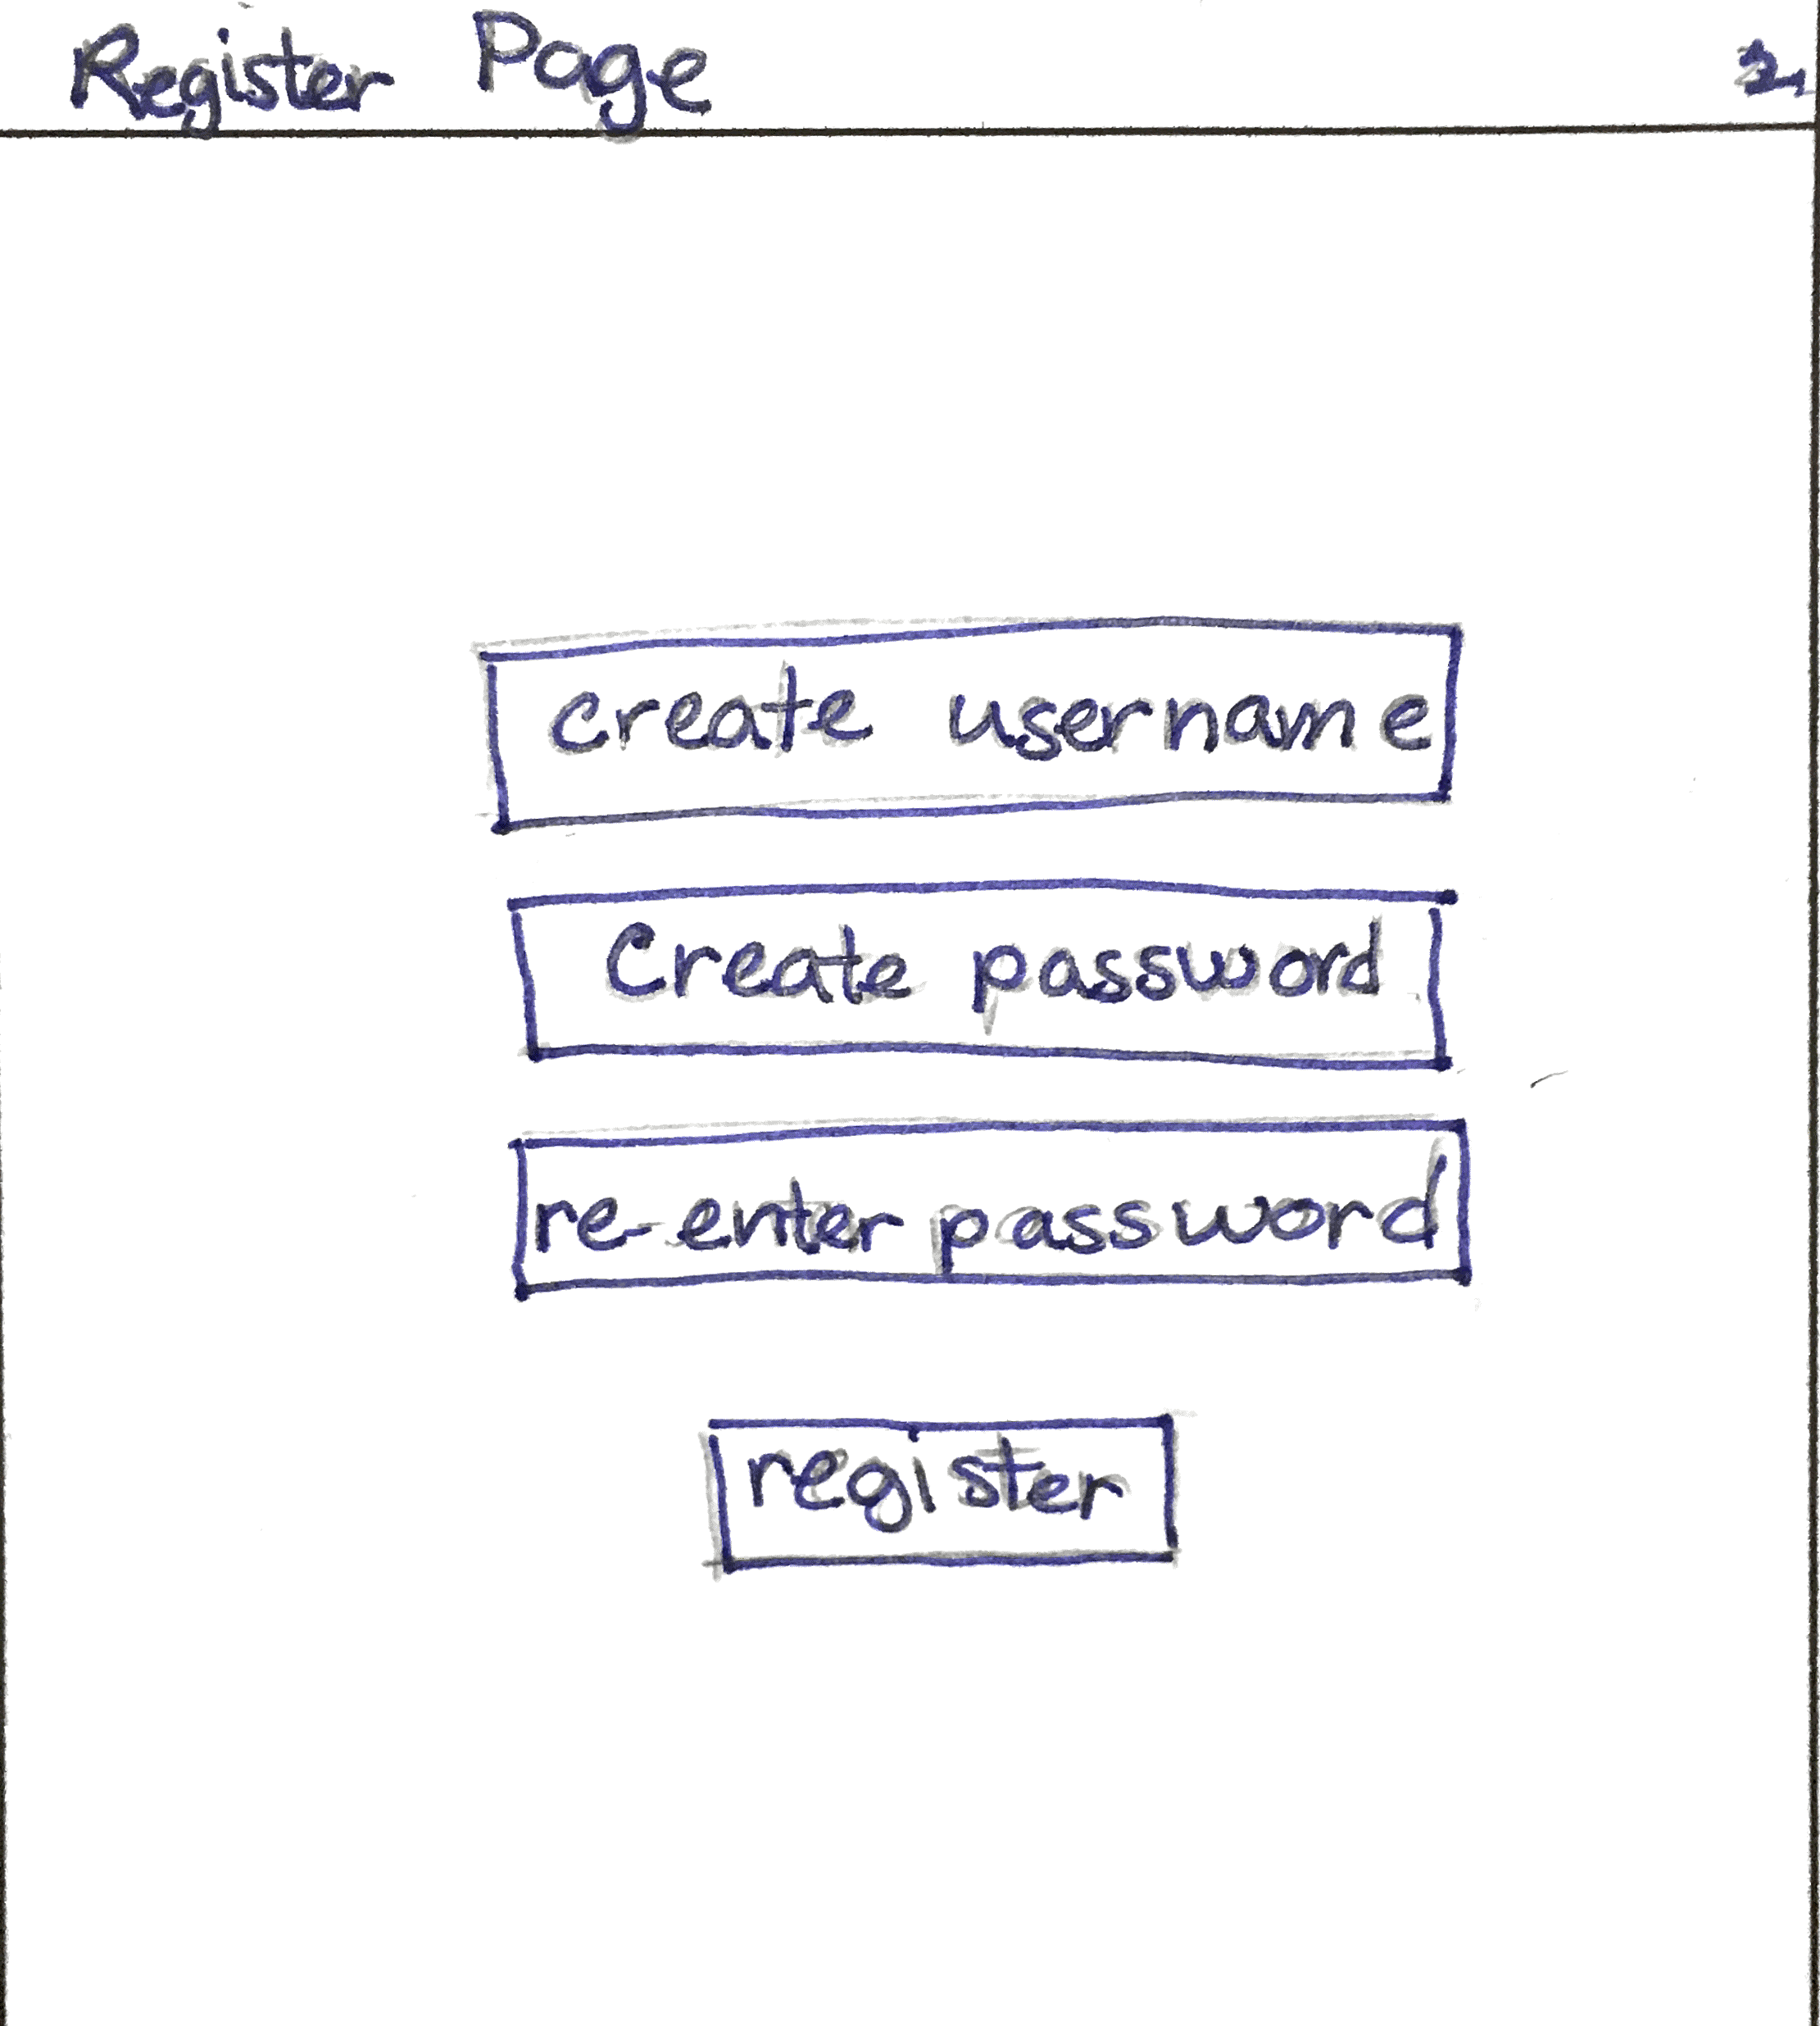 Register Page 2
create username
Create password
re-enter password
register